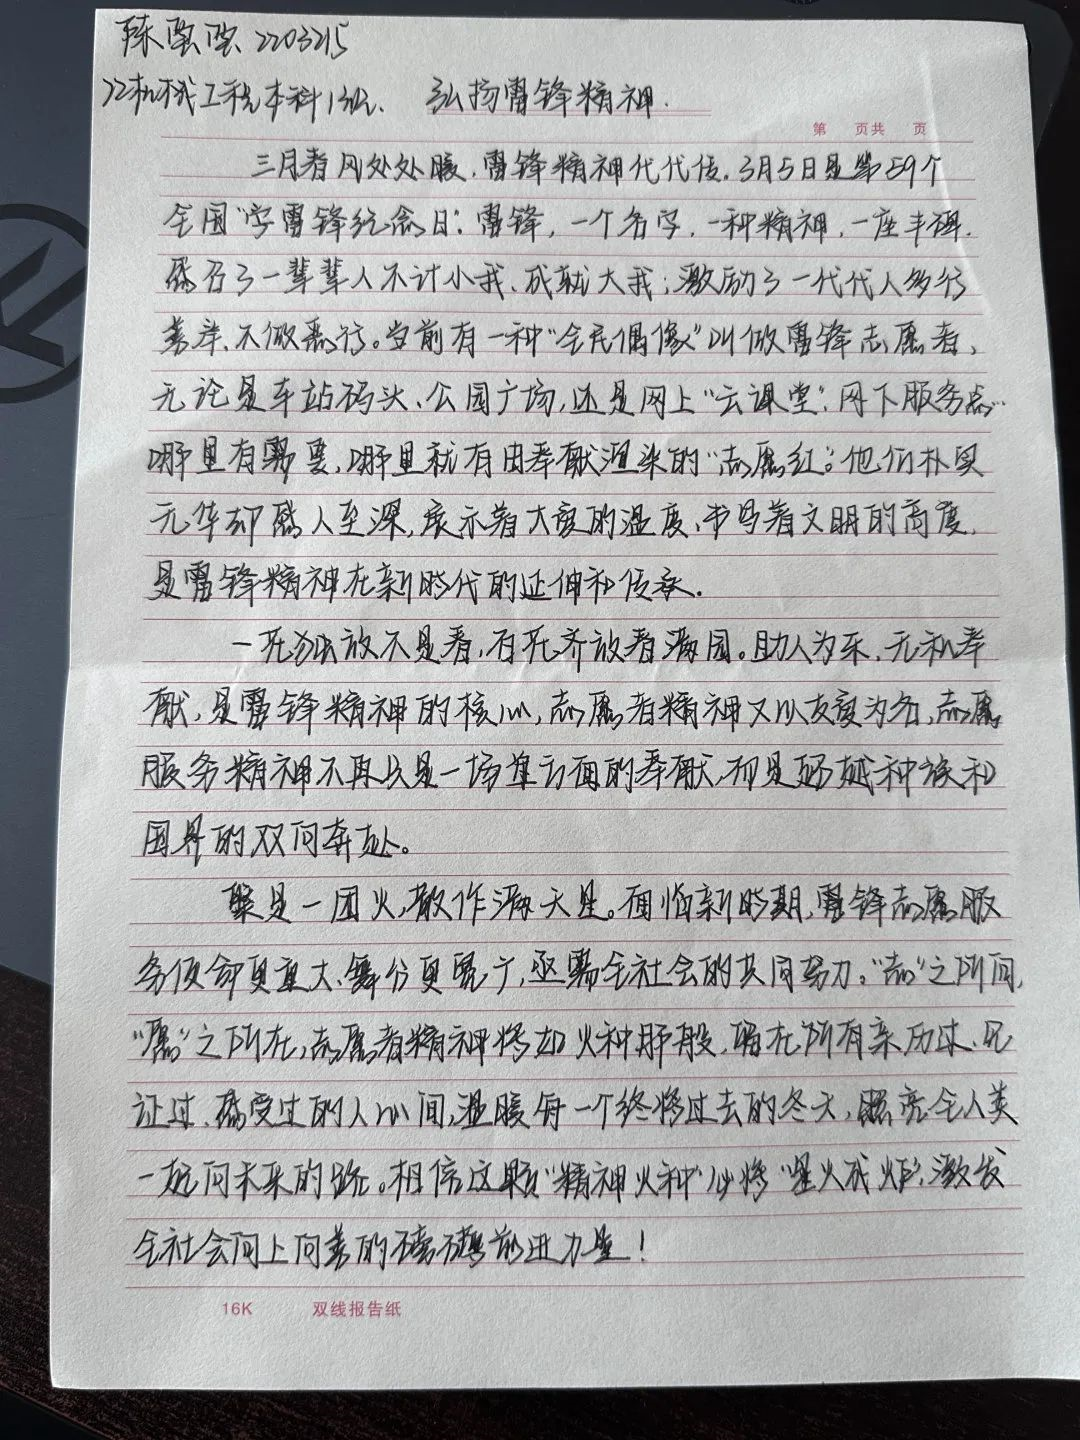 陈 2203215
22机械工程本科1班. 弘扬雷锋精神.
第 页共 页
三月春风处处暖,雷锋精神代代传。3月5日是第59个
全国"学雷锋纪念日"。雷锋,一个名字,一种精神,一座丰碑,
感召了一辈辈人不计小我、成就大我;激励了一代代人多行
善举、不做恶行。当前有一种"全民偶像"叫做雷锋志愿者,
无论是车站码头、公园广场,还是网上"云课堂"、网下服务点…
哪里有需要,哪里就有由奉献渲染的"志愿红"。他们朴实
无华却感人至深,展示着大爱的温度、书写着文明的高度,
是雷锋精神在新时代的延伸和传承.
一花独放不是春,百花齐放春满园。助人为乐、无私奉
献,是雷锋精神的核心,志愿者精神又以友爱为名,志愿
服务精神不再只是一场单方面的奉献,而是超越种族和
国界的双向奔赴。
聚是一团火,散作满天星。面临新时期,雷锋志愿服
务使命更重大、舞台更宽广,亟需全社会的共同努力。"志"之所向,
"愿"之所在,志愿者精神将如火种那般,留在所有亲历过、见
证过、感受过的人心间,温暖每一个终将过去的冬天,照亮全人类
一起向未来的路。相信这颗"精神火种"必将"星火成炬",激发
全社会向上向善的磅礴前进力量!
16K 双线报告纸